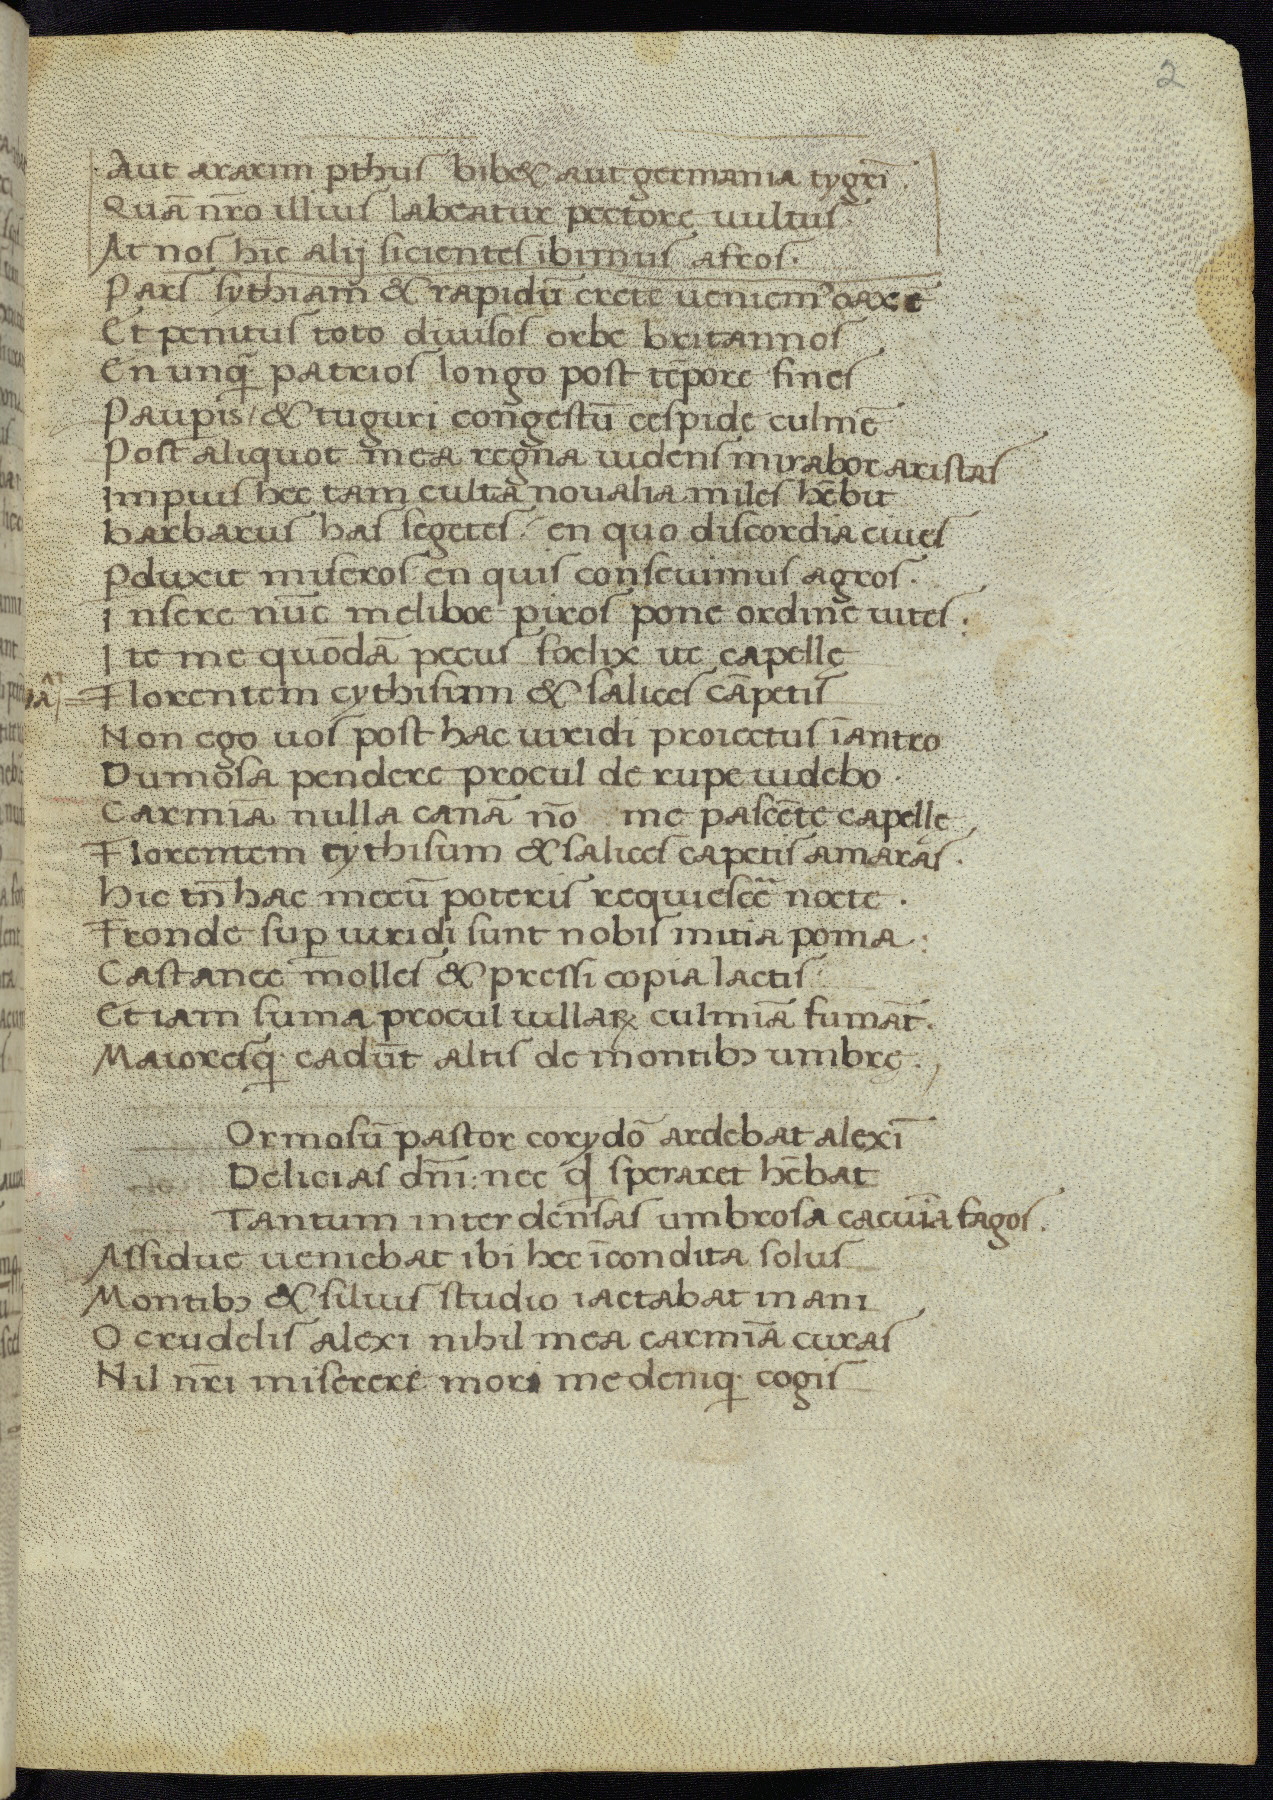 2
Aut ararim pthus bib& aut germania tygrī
Quā nr̄o illius labeatur pectore uultus
At nos hīc alij sicientes ibimus afros.
Pars sythiam & rapidū crete ueniem᷒ oaxē
Et penitus toto diuisos orbe britannos
En unq̄ patrios longo post tēpore fines
Paup̲is / & tuguri congestū cespide culmē
Post aliquot mea regna uidens mirabor aristas
Impius hec tam culta noualia miles hēbit
barbarus has segetes. en quo discordia ciues
P̲duxit miseros en quis conseuimus agros.
Insere nūc meliboe piros pone ordine uites.
Ite me quōdā pecus foelix ite capellę
Florentem cythisum & salices cāpetis
Non ego uos post hac uiridi proiectus īantro
Dumosa pendere procul de rupe uidebo.
Carmīa nulla canā nō me pascēte capellę
Florentem cythisum & salices capetis amaras.
hic tn̄ hac mecū poteris requiescē nocte.
Fronde sup̲ uiridi sunt nobis mitia poma:
Castanee molles & pressi copia lactis
Et iam suma procul uillaꝝ culmīa fumāt.
Maioresq̄ cadūt altis de montibꝫ umbrę.
Ormosū pastor corydō ardebat alexī
Delicias dn̄i: nec qd̄ speraret hēbat
Tantum inter densas umbrosa cacuīa fagos.
Assidue ueniebat ibi hec īcondita solus
Montibꝫ & siluis studio iactabat inani
O crudelis alexi nihil mea carmīa curas
Nil nr̄i miserere mori me deniq̄ cogis